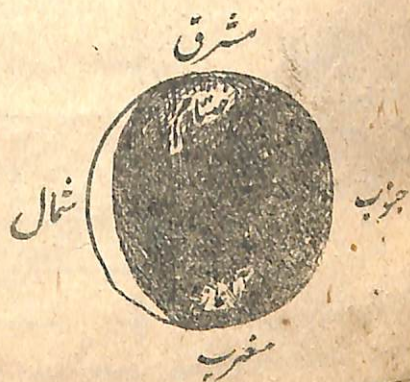 مشرق
شمال
جنوب
مغرب